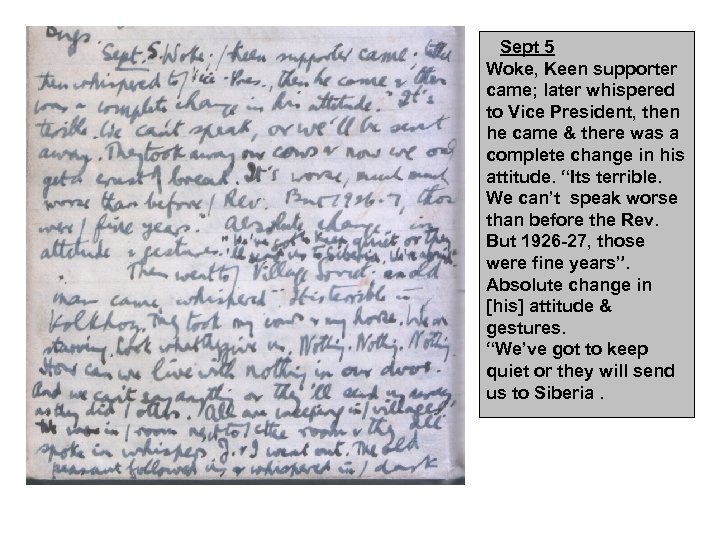 Days.
Sept. 5. Woke. / Keen supporter came. Later
then whispered to / Vice-Pres., then he came & there
was a complete change in his attitude. "It's
terrible. We can't speak, or we'll be sent
away. They took away our cows & now we only
get a crust / bread. It's worse, much much
worse than before / Rev. But 1926-7, those
were / fine years." Absolute change in
attitude & gestures. "We've got to keep quiet or they
'll send us to Siberia.
Then went to / Village Soviet. An old
man came, whispered "It is terrible in
Kolkhoz. They took my cows & my horse. We are
starving. Look what they give us. Nothing. Nothing. Nothing
How can we live with nothing in our dvor.
And we can't say anything or they'll send us away
as they did / others." All are weeping in / villages
We were in / room next to / ctee room & they all
spoke in whispers. J. & I went out. The old
peasant followed us & whispered in / dark
Sept 5
Woke, Keen supporter
came; later whispered
to Vice President, then
he came & there was a
complete change in his
attitude. “Its terrible.
We can’t speak worse
than before the Rev.
But 1926-27, those
were fine years”.
Absolute change in
[his] attitude &
gestures.
“We’ve got to keep
quiet or they will send
us to Siberia .